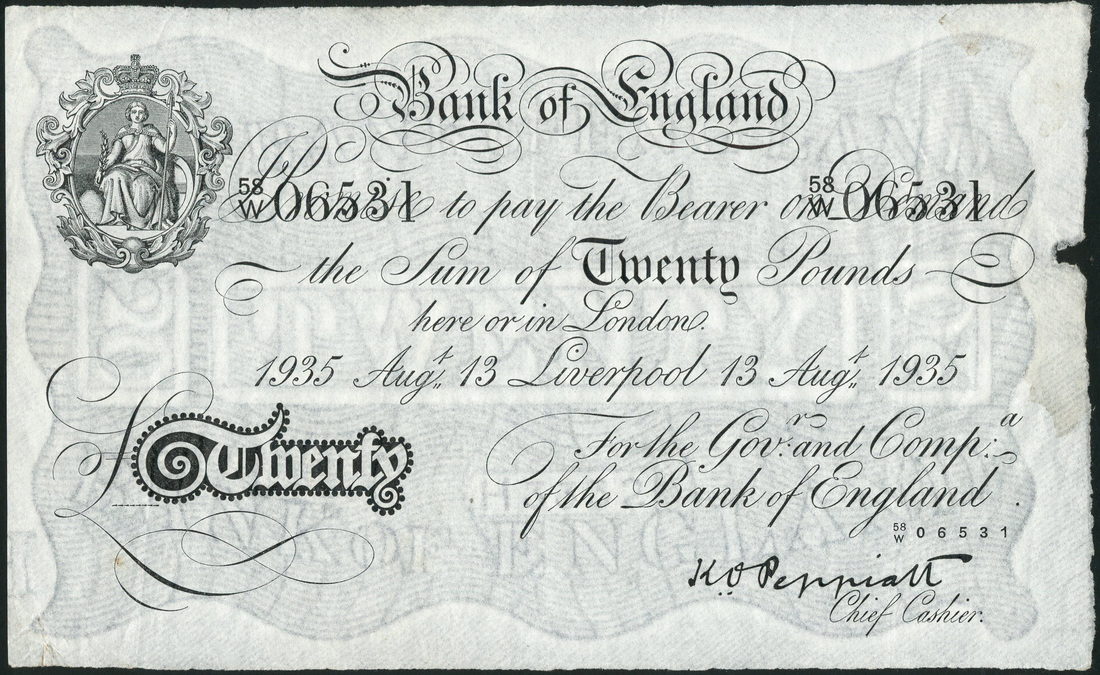 Bank of England
58
W 06531 58
W 06531
I Promise to pay the Bearer on Demand
the Sum of Twenty Pounds
here or in London.
1935 Augt 13 Liverpool 13 Augt 1935
£Twenty
For the Govr: and Compa:
of the Bank of England.
58
W 06531
K.O Peppiatt
Chief Cashier.